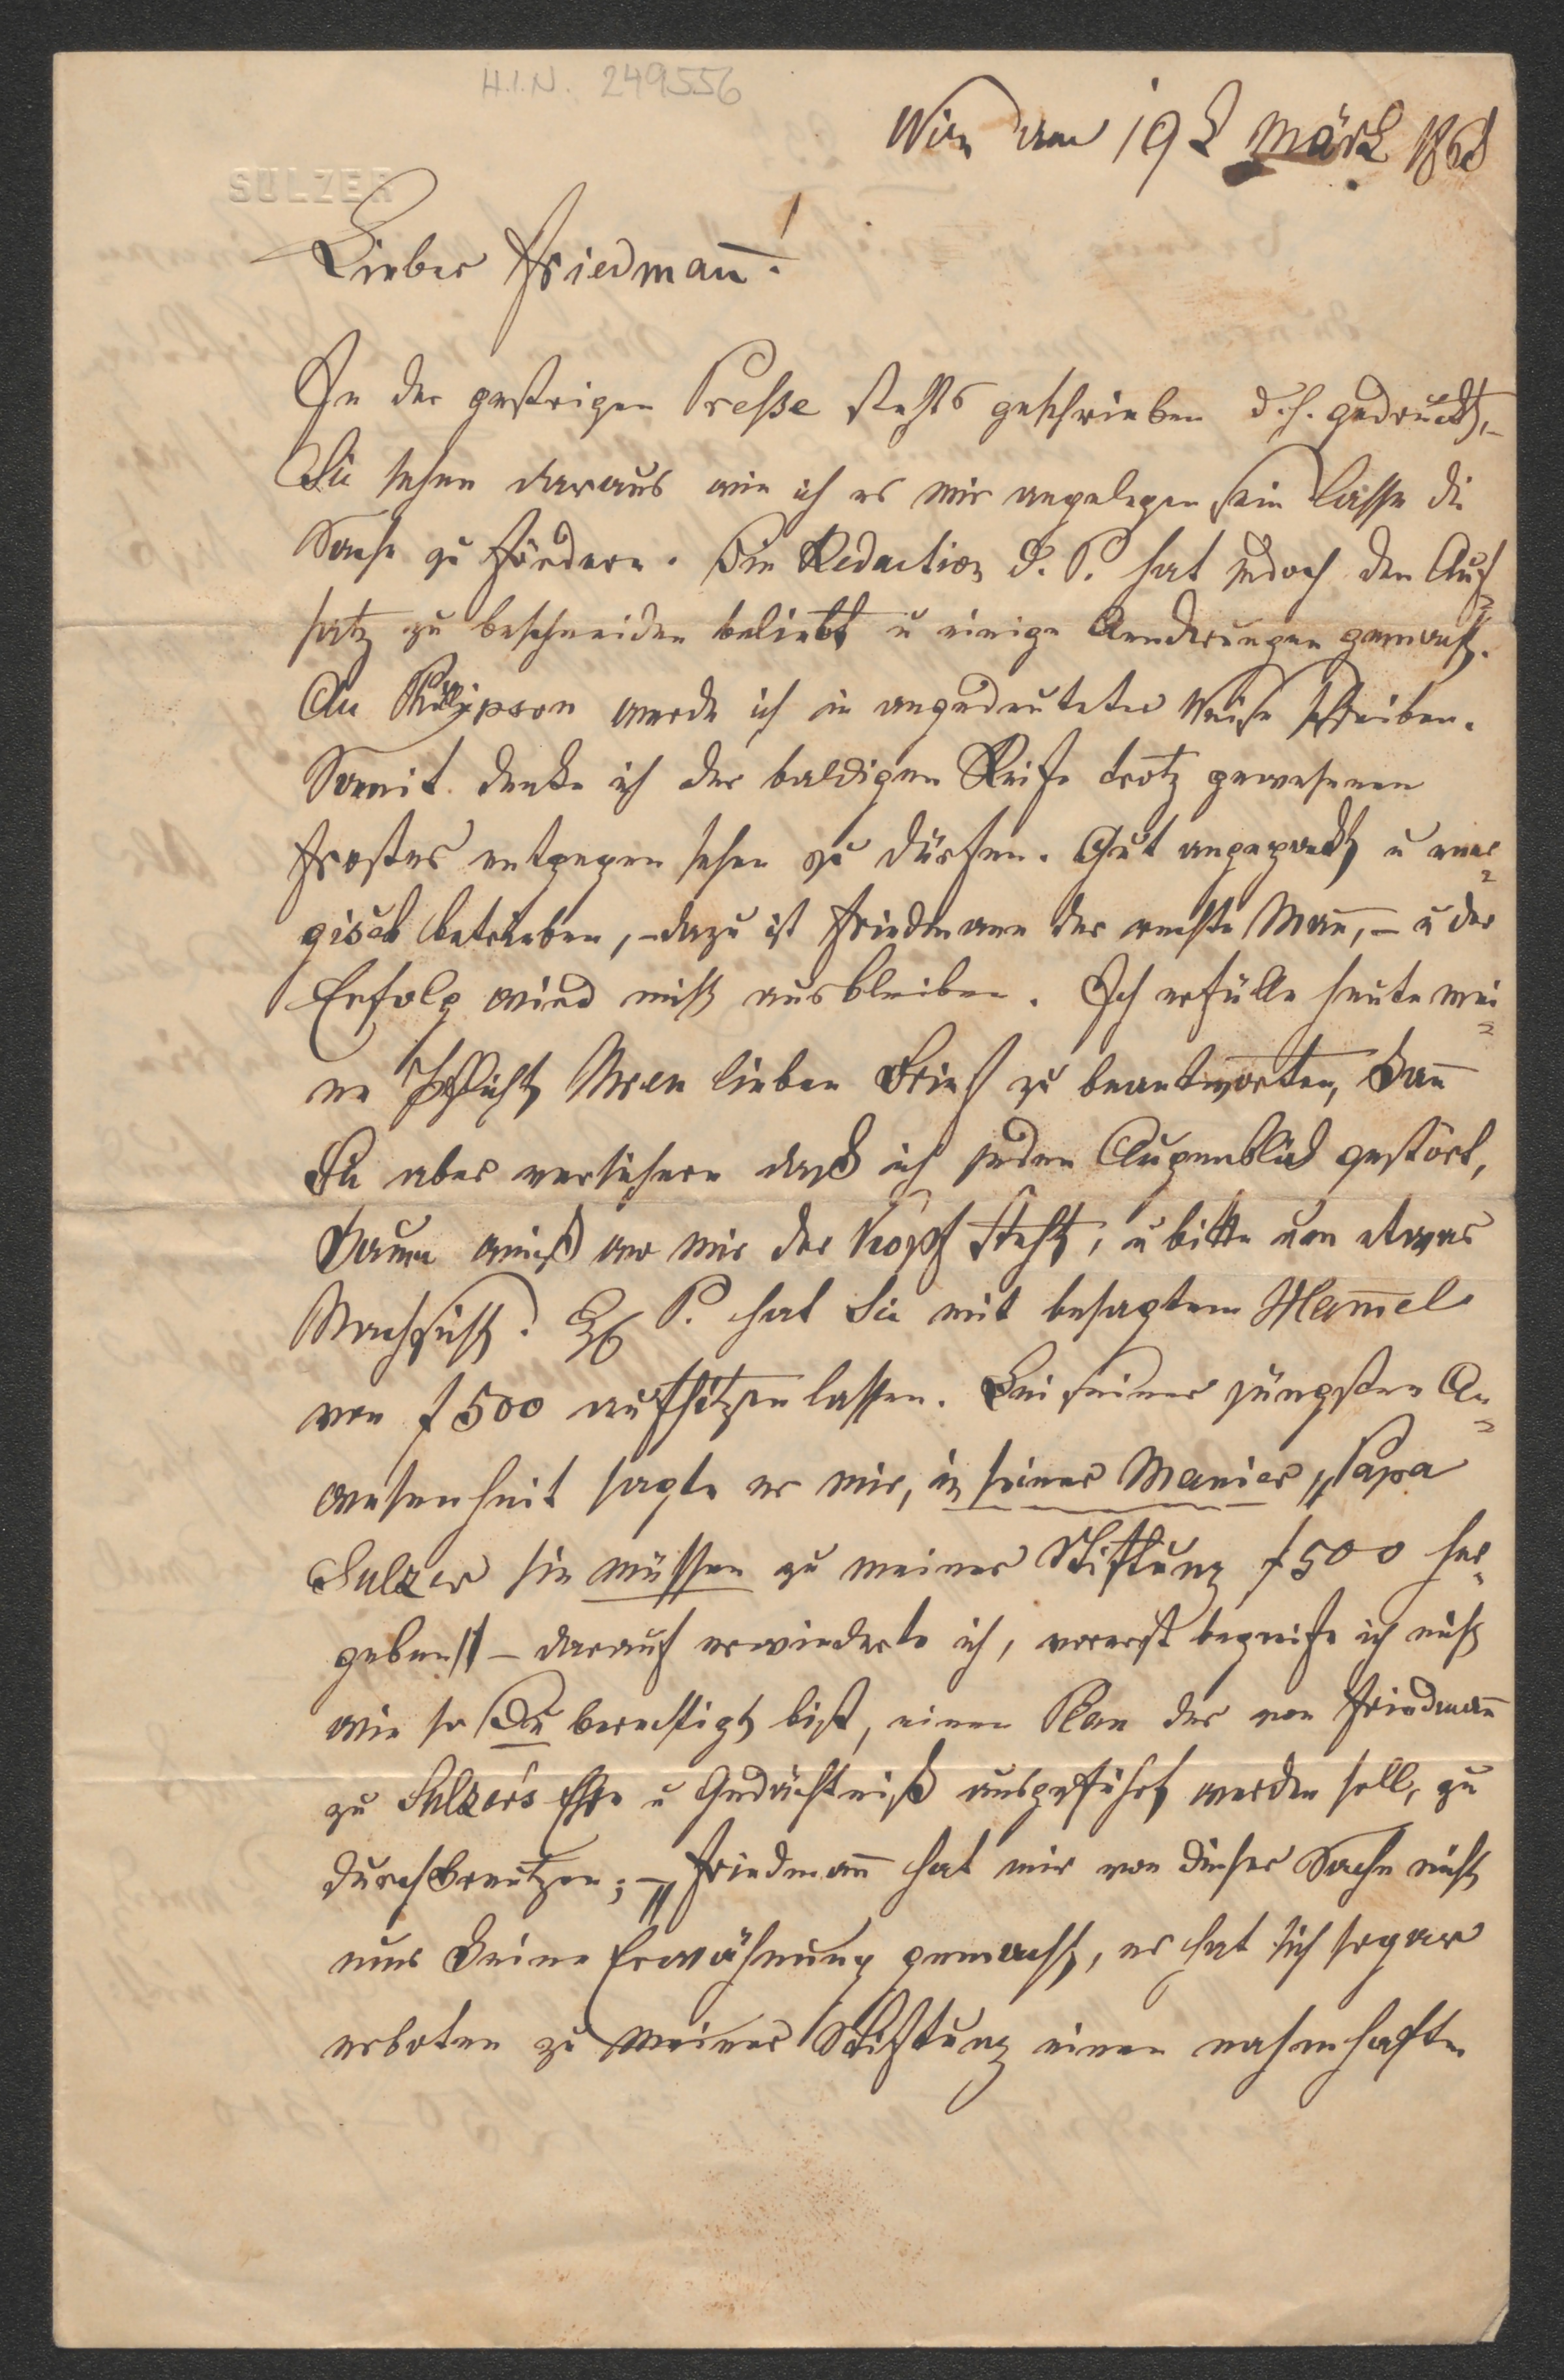 H.I.N. 249556
Wien am 19t März 1868
SULZER
Lieber Friedmann̄!
In der gestrigen Preße stehts geschrieben d.h. gedruckt,–
Sie sehen daraus wie ich es mir angelegen sein lasse die
Sache zu fördern. Die Redaction d. P. hat jedoch den Auf=
satz zu beschneiden beliebt u einige Aenderungen gemacht.
An Philippson werde ich in angedeuteter Weise schreiben.
Somit denke ich der baldigen Reife trotz gewesenen
Frostes entgegen sehen zu dürfen. Gut angepackt u ener=
gisch betrieben, – dazu ist Friedmann der rechte Man̄, – u der
Erfolg wird nicht ausbleiben. Ich erfülle heute mei=
ne Pflicht Ihren lieben Brief zu beantworten, kan̄
Sie aber versichern daß ich jeden Augenblick gestört,
kaum weiß wo mir der Kopf steht, u bitte um etwas
Nachsicht. P. hat Sie mit besagtem Ham̄el
von f 500 aufsitzen lassen. Bei seiner jüngsten An=
wesenheit sagte er mir, in seiner Manier, „Papa
Sulzer sie müssen zu meiner Stiftung f 500 her=
geben" – darauf erwiederte ich, vorerst begreife ich nicht
wie so Du berechtigt bist, einen Plan der von Friedman̄
zu Sulzer's Ehre u Gedächtniß ausgeführt werden soll, zu
durchkreutzen; – „Friedman̄ hat mir von dieser Sache nicht
nur keine Erwähnung gemacht, er hat sich sogar
erboten zu meiner Stiftung einen nahmhaften